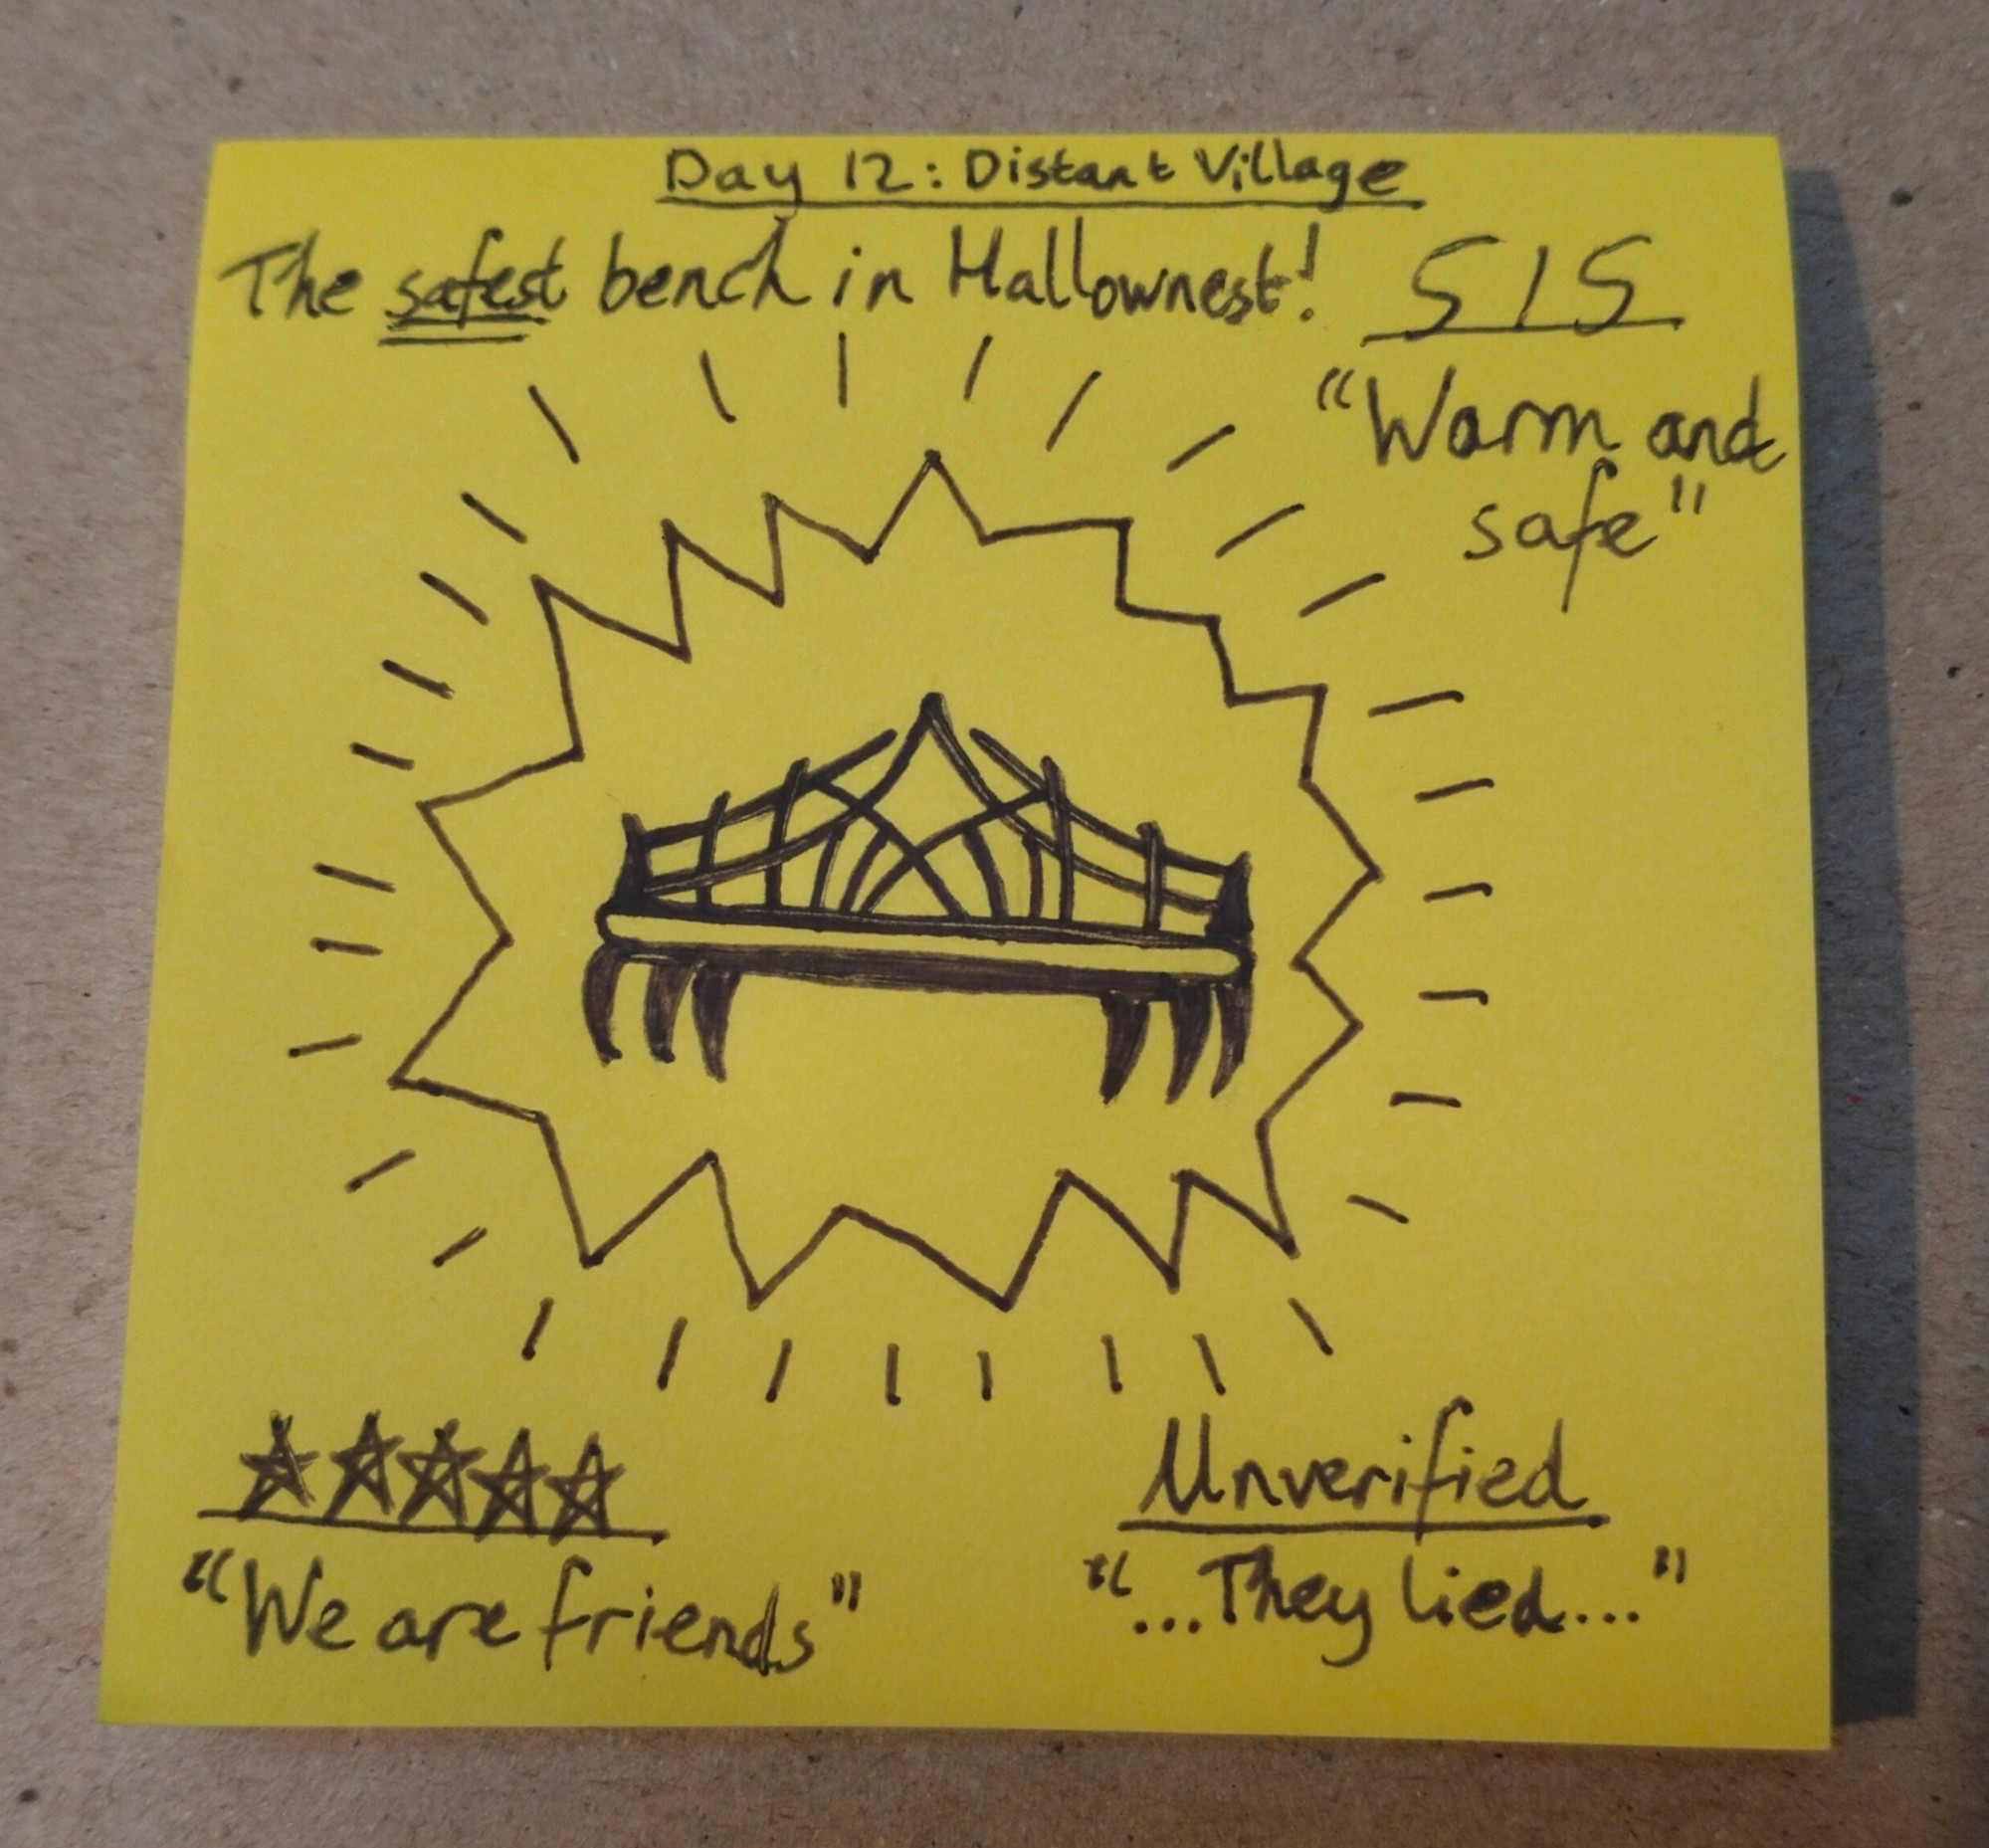 Day 12: Distant Village
The safest bench in Hallownest!
5/5
"Warm and
safe"
"We are friends"
Unverified
"...They lied..."